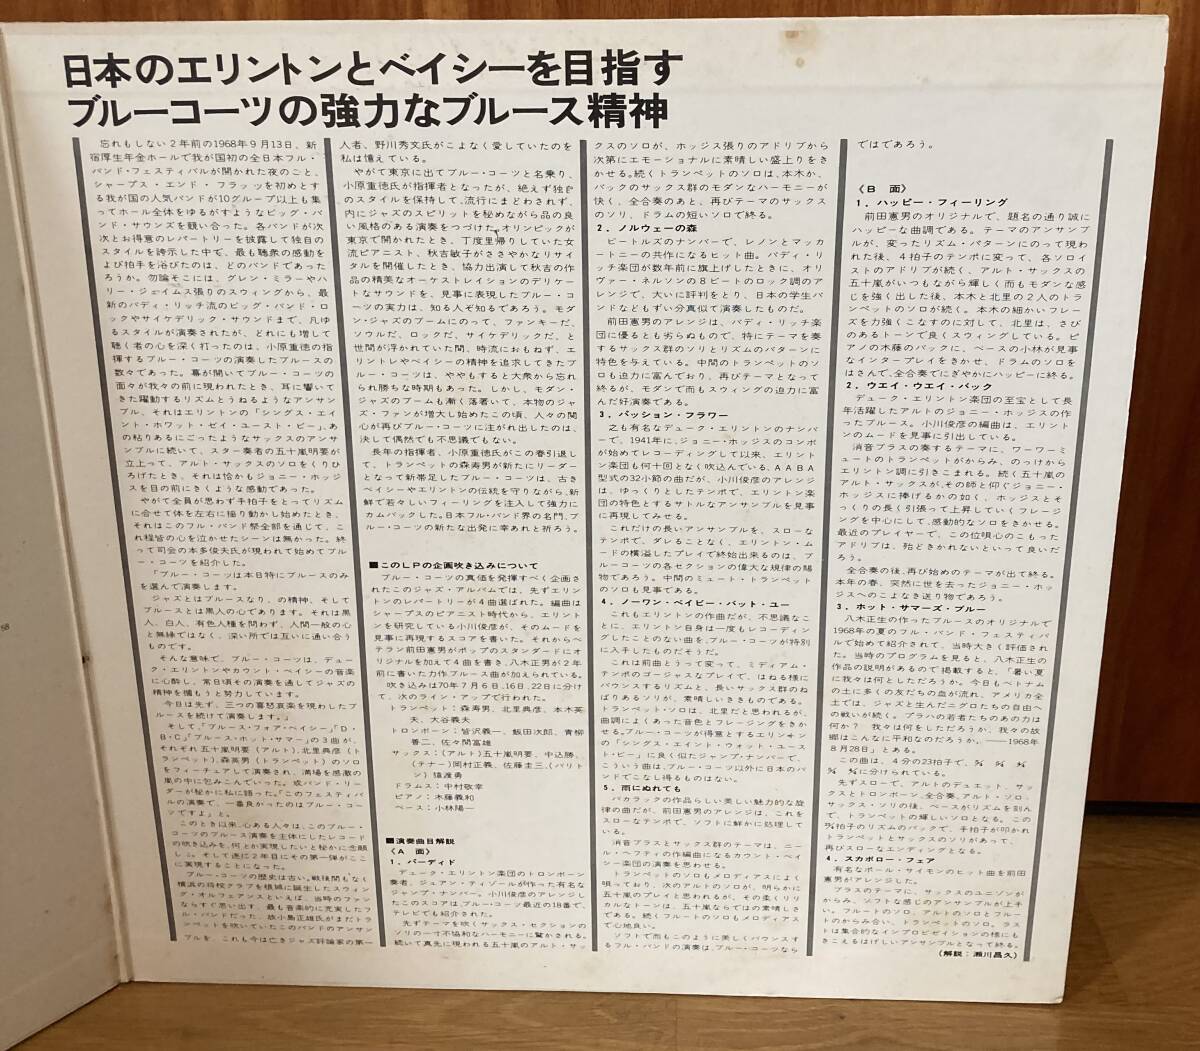 日本のエリントンとベイシーを目指す
ブルーコーツの強力なブルース精神
忘れもしない2年前の1968年9月13日、新
宿厚生年金ホールで我が国初の全日本フル・
バンド・フェスティバルが開かれた夜のこと、
シャープス・エンド・フラッツを初めとす
る我が国の人気バンドが10グループ以上も集
ってホール全体をゆるがすようなビッグ・バ
ンド・サウンズを競い合った。各バンドが次
次とお得意のレパートリーを披露して独自の
スタイルを誇示した中で、最も聴衆の感動を
よび拍手を浴びたのは、どのバンドであった
ろうか。勿論そこには、グレン・ミラーやハ
リー・ジェイムス張りのスウィングから、最
新のバディ・リッチ流のビッグ・バンド・ロ
ックやサイケデリック・サウンドまで、凡ゆ
るスタイルが演奏されたが、どれにも増して
聴く者の心を深く打ったのは、小原重徳の指
揮するブルー・コーツの演奏したブルースの
数々であった。幕が開いてブルー・コーツの
面々が我々の前に現われたとき、耳に響いて
きた躍動するリズムとうねるようなアンサン
ブル、それはエリントンの「シングス・エイ
ント・ホワット・ゼイ・ユースト・ビー」、あ
の粘りあるにごったようなサックスのアンサ
ンブルに続いて、スター奏者の五十嵐明要が
立上って、アルト・サックスのソロをくりひ
ろげたとき、それは恰かもジョニー・ホッジ
スを目の前にきくような感動であった。
やがて全員が思わず手拍子をとってリズム
に合せて体を左右に揺り動かし始めたとき、
それはこのフル・バンド祭全部を通じて、こ
れ程皆の心を泣かせたシーンは無かった。終
って司会の本多俊夫氏が現われて始めてブル
ー・コーツを紹介した。
「ブルー・コーツは本日特にブルースのみ
を選んで演奏します。
ジャズとはブルースなり、の精神、そして
ブルースとは黒人の心であります。それは黒
人、白人、有色人種を問わず、人間一般の心
と無縁ではなく、深い所では互いに通い合う
ものです。
そんな意味で、ブルー・コーツは、デュー
ク・エリントンやカウント・ベイシーの音楽
に心酔し、常日頃その演奏を通してジャズの
精神を掴もうと努力しています。
今日は先ず、三つの喜怒哀楽を現わしたブ
ルースを続けて演奏します。」
そして「ブルース・フォア・ベイシー」「D・
B・C」「ブルース・ホット・サマー」の3曲が、
それぞれ五十嵐明要(アルト)、北里典彦(ト
ランペット)、森英男(トランペット)のソロ
をフィーチュアして演奏され、満場を感激の
嵐の中に包みこんでいった。或バンド・リー
ダーが秘かに私に語った。「このフェスティバ
ルの演奏で、一番良かったのはブルー・コー
ツですよ」と。
このとき以来、心ある人々は、このブルー・
コーツのブルース演奏を主体にしたレコード
の吹き込みを、何とか実現したいと秘かに念願
し、そして遂に2年目にその第一弾がここ
に実現することになった。
ブルー・コーツの歴史は古い。戦後間もなく
横浜の将校クラブを根城に誕生したスウィン
グ・フルバンスといえば、当時のファンな
らすぐ思い出す、最も音楽的に充実したフ
ル・バンドだった、故小島正雄氏がまだトラ
ンペットを吹いていたこのバンドのアンサン
ブルを、これも今は亡きジャズ評論家の第一
人者、野川秀文氏がこよなく愛していたのを
私は憶えている。
やがて東京に出てブルー・コーツと名乗り、
小原重徳氏が指揮者となったが、絶えず独自
のスタイルを保持して、流行にまどわされず、
内にジャズのスピリットを秘めながら品の良
い風格のある演奏をつづけた。オリンピックが
東京で開かれたとき、丁度里帰りしていた女
流ピアニスト、秋吉敏子がささやかなリサイ
タルを開催したとき、協力出演して秋吉の作
品の精美なオーケストレイションのデリケー
トなサウンドを、見事に表現したブルー・コ
ーツの実力は、知る人ぞ知るであろう。モダ
ン・ジャズのブームにのって、ファンキーだ、
ソウルだ、ロックだ、サイケデリックだ、と
世間が浮かれていた間、時流におもねず、エ
リントレやベイシーの精神を追求してきたブ
ルー・コーツは、ややもすると大衆から忘れ
られ勝ちな時期もあった。しかし、モダン・
ジャズのブームも漸く落着いて、本物のジャ
ズ・ファンが増大し始めたこの頃、人々の関
心が再びブルー・コーツに注がれ出したのは、
決して偶然でも不思議でもない。
長年の指揮者、小原重徳氏がこの春引退し
て、トランペットの森寿男が新たにリーダー
となって新帯足したブルー・コーツは、古き
ベイシーやエリントンの伝統を守りながら、新
鮮で若々しいフィーリングを注入して強力に
カムバックした。日本フル・バンド界の名門、ブ
ルー・コーツの新たな出発に幸あれと祈ろう。
■このLPの企画吹き込みについて
ブルー・コーツの真価を発揮すべく企画さ
れたこのジャズ・アルバムでは、先ずエリント
ンのレパートリーが4曲選ばれた。編曲は
シャープスのピアニスト時代から、エリント
ンを研究している小川俊彦が、そのムードを
見事に再現するスコアを書いた。それからベ
テラン前田憲男がポップのスタンダードにオ
リジナルを加えて4曲を書き、八木正男が2年
前に書いた力作ブルース曲が加えられている。
吹き込みは70年7月6日、16日、22日に分け
て、次のライン・アップで行われた。
トランペット：森寿男、北里典彦、本木英
夫、大谷義夫
トロンボーン：皆沢義一、飯田次郎、青柳
善二、佐々間富雄
サックス：(アルト)五十嵐明要、中込勝、
(テナー)岡村正義、佐藤圭三、(バリト
ン)猿渡勇
ドラムス：中村敬幸
ピアノ：木藤義和
ベース：小林陽一
■演奏曲目解説
《A 面》
1．パーディド
デューク・エリントン楽団のトロンボーン
奏者、ジュアン・ティゾールが作った有名な
ジャンプ・ナンバー。小川俊彦のアレンジし
たこのスコアは、ブルー・コーツ最近の18番で、
テレビでも紹介された。
先ずテーマを吹く(サックス・セクションの
ソリの一寸不協和なハーモニーに驚かされる。
続いて真先に現われる五十嵐のアルト・サッ
クスのソロが、ホッジス張りのアドリブから
次第にエモーショナルに素晴しい盛上りをき
かせる。続くトランペットのソロは、本木か、
バックのサックス群のモダンなハーモニーが
快く、全合奏のあと、再びテーマのサックス
のソリ、ドラムの短いソロで終る。
2．ノルウェーの森
ビートルズのナンバーで、レノンとマッカ
ートニーの共作になるヒット曲。バディ・リ
ッチ楽団が数年前に旗上げしたときに、オリ
ヴァー・ネルソンの8ビートのロック調のア
レンジで、大いに評判をとり、日本の学生バ
ンドなどもずい分真似て演奏したものだ。
前田憲男のアレンジは、バディ・リッチ楽
団に優るとも劣らぬもので、特にテーマを奏
するサックス群のソリとリズムのパターンに
特色を与えている。中間のトランペットのソ
ロも迫力に富んでおり、再びテーマとなって
終るが、モダンで而もスウィングの迫力に富
んだ好演奏である。
3．パッション・フラワー
之も有名なデューク・エリントンのナンバ
ーで、1941年に、ジョニー・ホッジスのコンボ
が始めてレコーディングして以来、エリント
ン楽団も何十回となく吹込んでいる、AABA
型式の32小節の曲だが、小川俊彦のアレンジ
は、ゆっくりとしたテンポで、エリントン楽
団の特色とするサトルなアンサンブルを見事
に再現してみせる。
これだけの長いアンサンブルを、スローな
テンポで、ダレることなく、エリントン・ムー
ドの横溢したプレイで終始出来るのは、ブ
ルーコーツの各セクションの偉大な規律の賜
物であろう。中間のミュート・トランペット
のソロも見事である。
4．ノーワン・ベイビー・バット・ユー
これもエリントンの作曲だが、不思議なこ
とに、エリントン自身は一度もレコーディン
グしたことのない曲を、ブルー・コーツが特別
に入手したものだそうだ。
これは前曲とうって変って、ミディアム・
テンポのゴージャスなプレイで、はねる様に
バウンスするリズムと、長いサックス群のね
ばりあるソリが、素晴しいききものである。
トランペット・ソロは、北里だと思われるが、
曲調によくあった音色とフレージングをきか
せる。ブルー・コーツが得意とするエリントン
の「シングス・エイント・ウォット・ユース
ト・ビー」に良く似たジャンプ・ナンバーで、
こういう曲は、ブルー・コーツ以外に日本のバ
ンドでこなし得るものはない。
5．雨にぬれても
バカラックの作品らしい美しい魅力的な旋
律の曲だが、前田憲男のアレンジは、これを
スローなテンポで、ソフトに鮮かに処理して
いる。
消音ブラスとサックス群のテーマは、ニー
ル・ヘフティの作編曲になるカウント・ベイ
シー楽団の演奏を思わせる。
トランペットのソロもメロディアスによく
唄っており、次のアルトのソロが、明らかに
五十嵐のプレイと思われるが、その柔くリリ
カルなトーンは、五十嵐ならではの素晴しさ
である。続くフルートのソロもメロディアス
で心地良い。
ソフトで而もこのように美しくバウンスす
るフル・バンドの演奏は、ブルー・コーツなら
ではであろう。
《B 面》
1．ハッピー・フィーリング
前田憲男のオリジナルで、題名の通り誠に
ハッピーな曲調である。テーマのアンサンブ
ルが、変ったリズム・パターンにのって現わ
れた後、4拍子のテンポに変って、各ソロイ
ストのアドリブが続く、アルト・サックスの
五十嵐がいつもながら輝しく而もモダンな感
じを強く出した後、本木と北里の2人のトラ
ンペットのソロが続く。本木の細かいフレー
ズを力強くこなすのに対して、北里は、さび
のあるトーンで良くスウィングしている。ピ
アノの木藤のバックに、ベースの小林が見事
なインタープレイをきかせ、ドラムのソロを
はさんで、全合奏でにぎやかにハッピーに終る。
2．ウエイ・ウエイ・バック
デューク・エリントン楽団の至宝として長
年活躍したアルトのジョニー・ホッジスの作
ったブルース。小川俊彦の編曲は、エリント
ンのムードを見事に引出している。
消音ブラスの奏するテーマに、ワーワーミ
ュートのトランペットがからみ、のっけから
エリントン調に引きこまれる。続く五十嵐の
アルト・サックスが、その師と仰ぐジョニー・
ホッジスに捧げるかの如く、ホッジスとそ
っくりの長く引張って上昇していくフレージ
ングを中心にして、感動的なソロをきかせる。
最近のプレイヤーで、この位唄心のこもった
アドリブは、殆どきかれないといって良いだ
ろう。
全合奏の後、再び始めのテーマが出て終る。
本年の春、突然に世を去ったジョニー・ホッ
ジスへのこよなき送り物であろう。
3．ホット・サマーズ・ブルー
八木正生の作ったブルースのオリジナルで
1968年の夏のフル・バンド・フェスティバ
ルで始めて紹介されて、当時大きく評価され
た。当時のプログラムを見ると、八木正生の
作品の説明があるので掲載すると、「暑い夏
に我々は何としただろうか。今日もベトナム
の土に多くの友だちの血が流れ、アメリカ全
土では、ジャズと生んだニグロたちの自由へ
の戦いが続く。プラハの若者たちのあの力は
何か？ 我々は何をしただろうか、我々の故
郷はこんなに平和なのだろうか。――1968年
8月28日」とある。
この曲は、4分の23拍子で、
に分けられている。
先ずスローで、アルトのデュエット、サッ
クスとトロンボーン、全合奏、アルト・ソロ、
サックス・ソリの後、ベースがリズムを刻ん
で、トランペットの輝しいソロとなる。この
拍子のリズムのバックで、手拍子が叩かれ
トランペットとサックスのソリがあって、
再びスローなエンディングとなる。
4．スカボロー・フェア
有名なポール・サイモンのヒット曲を前田
憲男がアレンジした。
ブラスのテーマに、サックスのユニゾンが
からみ、ソフトな感じのアンサンブルが上手
い。フルートのソロ、アルトのソロとフルー
トのからみ合い、トランペットのソロ。ラス
トは集合的なインプロビゼイションの様にも
きこえるはげしいアンサンブルとなって終る。
(解説：瀬川昌久)